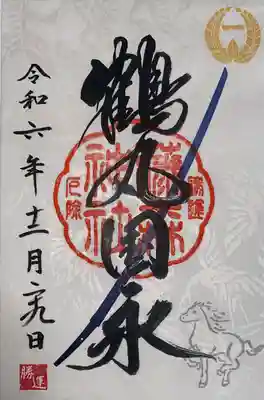 鶴丸国永
藤森神社
勝運
厄除
令和六年十二月二九日
勝運